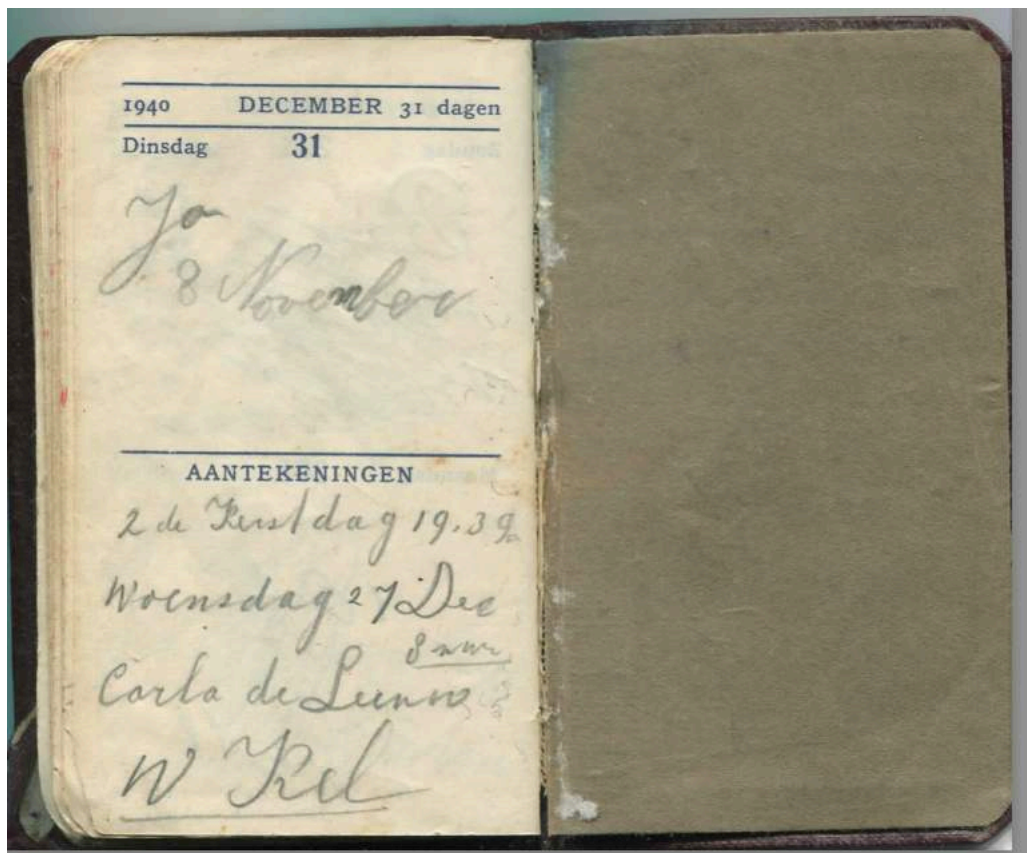 1940 DECEMBER 31 dagen
Dinsdag 31
Jo
8 November
AANTEKENINGEN
2 de Kerstdag 19.39
Woensdag 27 Dec
8 uur
Carla de Leeuw
W Kel